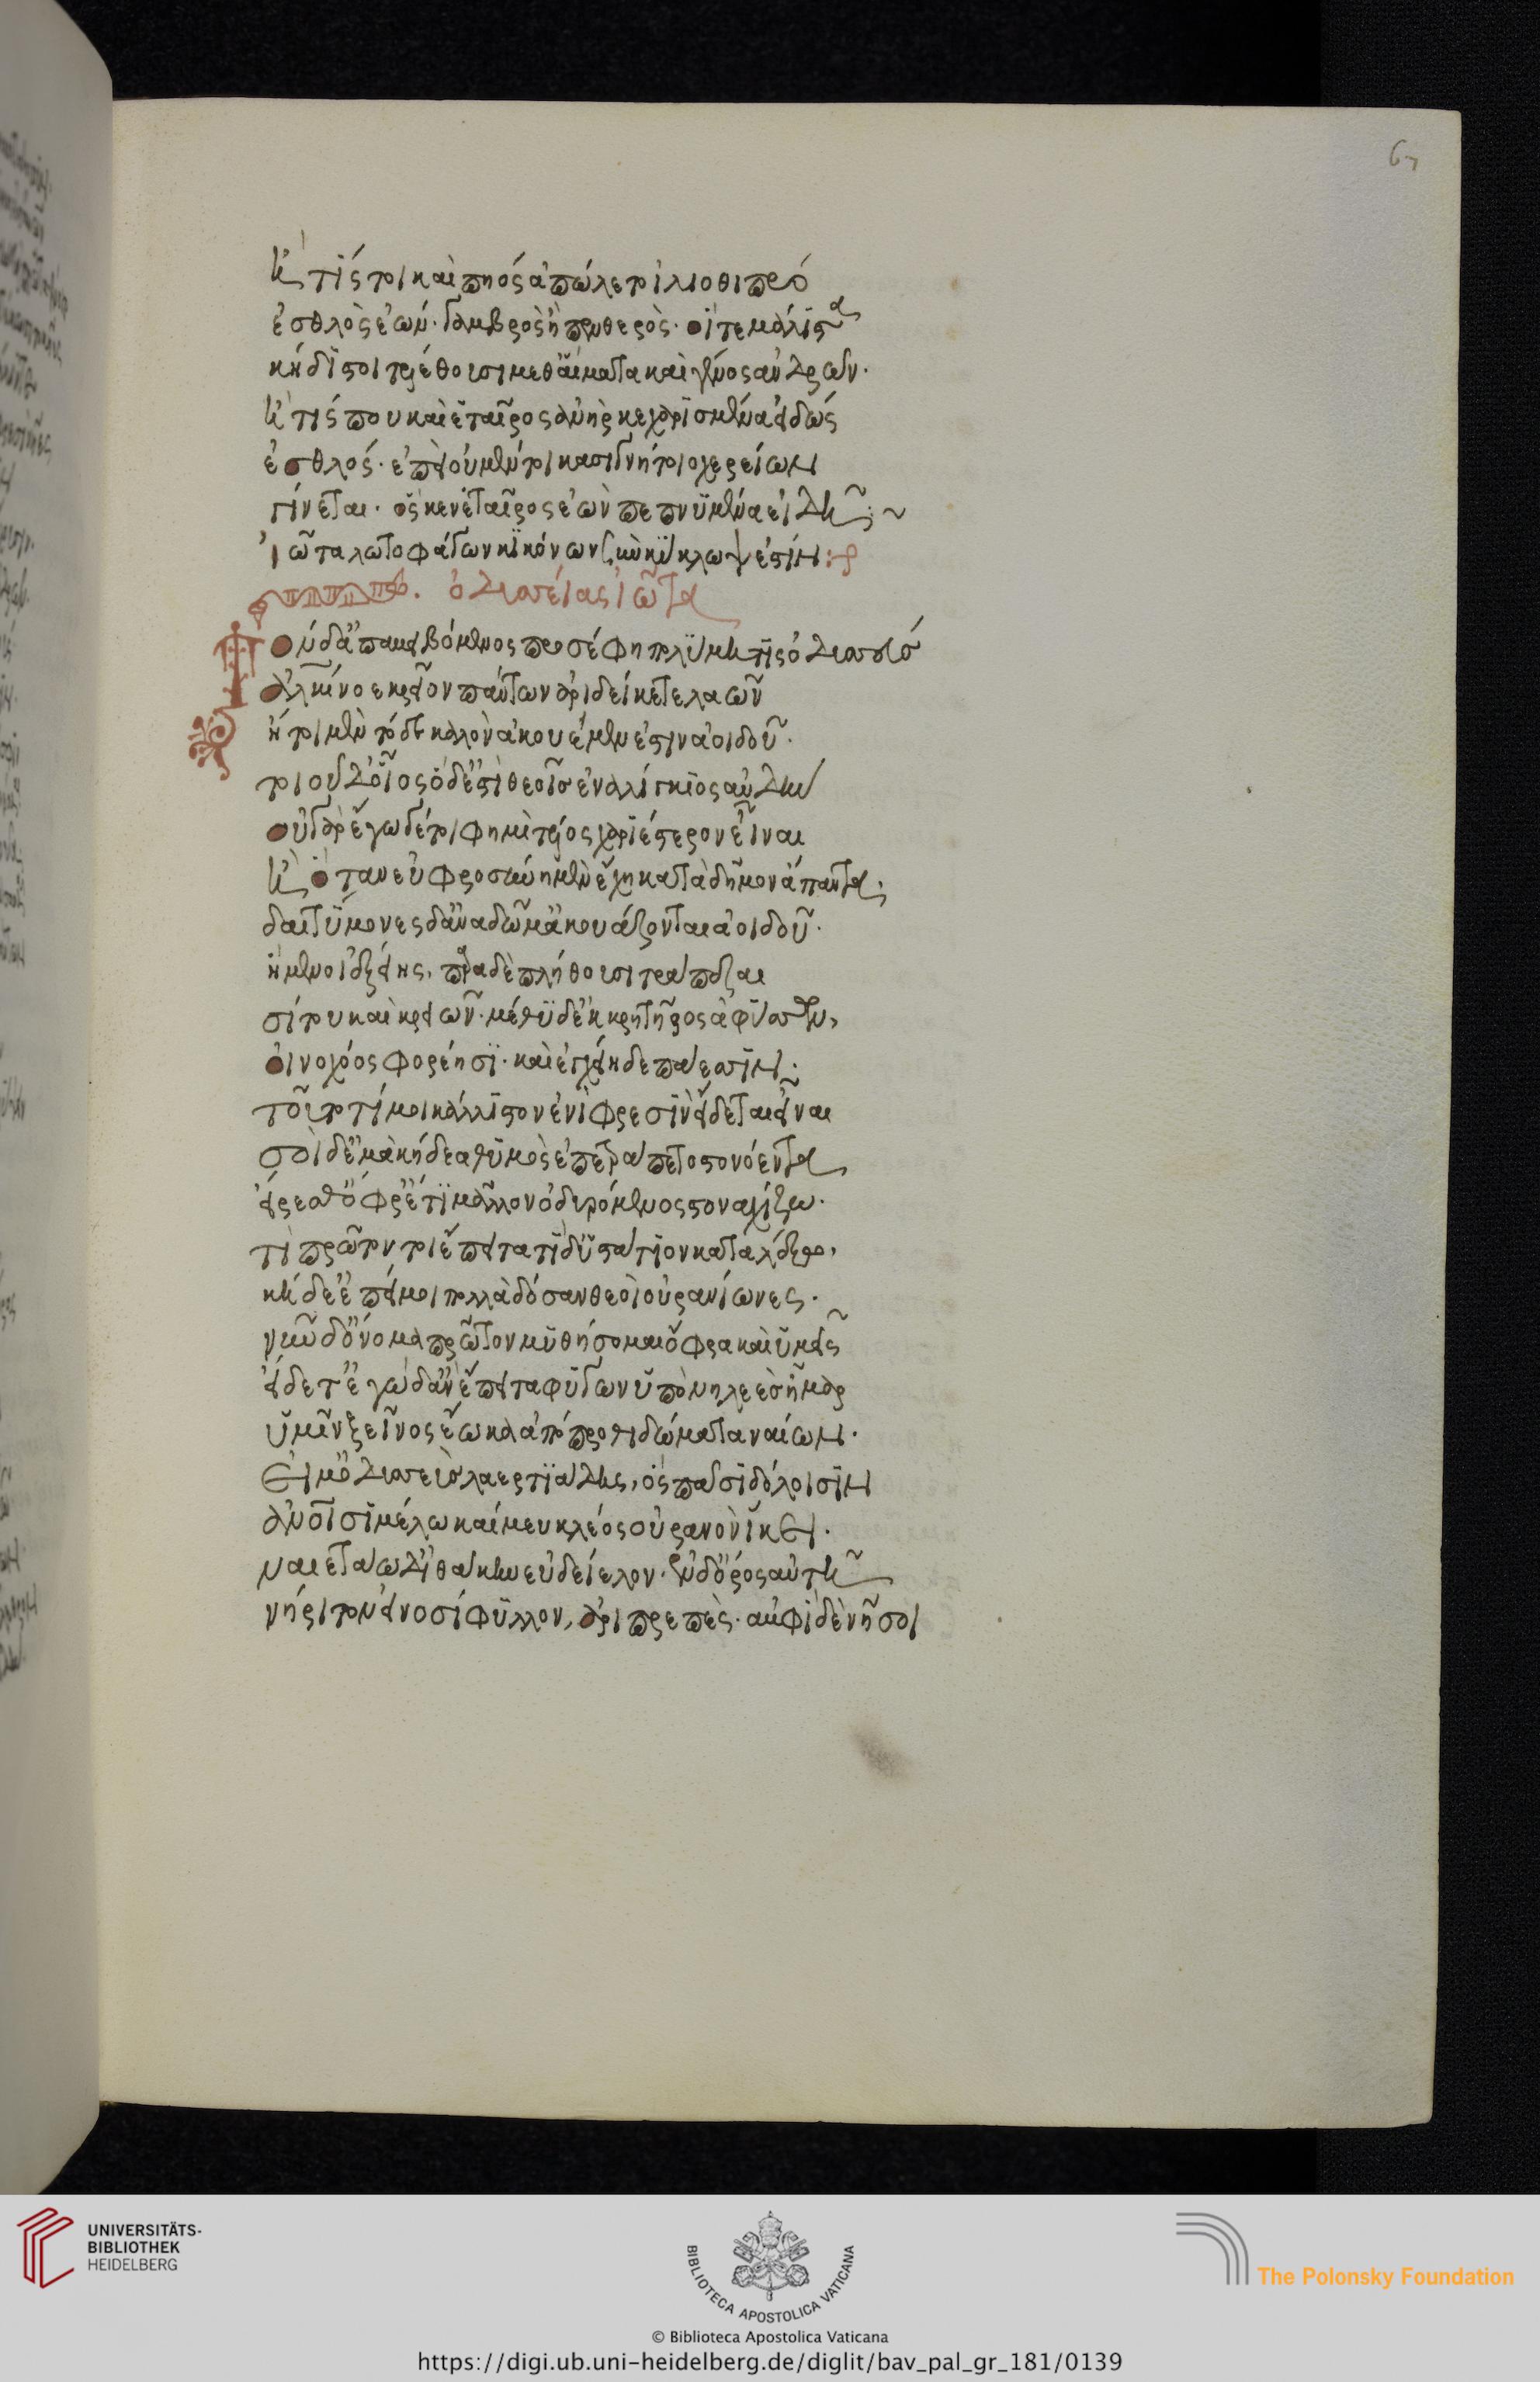 ἦ τίς τοι καὶ πηός ἀπώλετο ἰλιόθι πρό
ἐσθλὸς ἐών· γαμβρὸς ἢ πενθερὸς· οἵ τε μάλιστα
κήδιστοι τελέθουσι μεθ' αἵματα καὶ γένος ἀνδρῶν·
ἦ τίς που καὶ ἑταῖρος ἀνὴρ κεχαρισμένα εἰδώς
ἐσθλός· ἐπεὶ οὐ μέν τοι κασιγνήτοιο χερείων
γίνεται· ὅς κεν ἑταῖρος ἐὼν πεπνυμένα εἰδῇ:~
ἰῶτα λωτοφάγων κικόνων κύκλωψ ἐστίν:
ὀδυσσείας ἰῶτα
Τοὺδ' ἀπαμειβόμενος προσέφη πολύμητις ὀδυσσεύς
ἀλκίνοε κρεῖον πάντων ἀριδείκετε λαῶν
ἤτοι μὲν τόδε καλὸν ἀκουέμεν ἐστὶν ἀοιδοῦ·
τοιοῦδ' οἷος ὅδ' ἐστὶ θεοῖσ' ἐναλίγκιος αὐδήν
οὐ γὰρ ἔγωγέ τί φημι τέλος χαριέστερον εἶναι
ἢ ὅταν εὐφροσύνη μὲν ἔχῃ κατὰ δῆμον ἅπαντα·
δαιτυμόνες δ' ἀνὰ δώματ' ἀκουάζονται ἀοιδοῦ·
ἥμενοι ἑξείης, παρὰ δὲ πλήθουσι τράπεζαι
σίτου καὶ κρειῶν· μέθυ δ' ἐκ κρητῆρος ἀφύσσων,
οἰνοχόος φορέησι· καὶ ἐγχείη δεπάεσσιν·
τοῦτό τί μοι κάλλιστον ἐνὶ φρεσὶν εἴδεται εἶναι
σοὶ δ' ἐμὰ κήδεα θυμὸς ἐπετράπετο στονόεντα
εἴρεσθ' ὄφρ' ἔτι μᾶλλον ὀδυρόμενος στοναχίζω·
τί πρῶτόν τοι ἔπειτα τί δ' ὑστάτιον καταλέξω,
κήδε' ἐπεί μοι πολλὰ δόσαν θεοὶ οὐρανίωνες·
νῦν δ' ὄνομα πρῶτον μυθήσομαι ὄφρα καὶ ὑμεῖς
εἴδετ' ἐγὼ δ' ἂν ἔπειτα φυγὼν ὑπὸ νηλεὲς ἦμαρ
ὑμῖν ξεῖνος ἔω καὶ ἀπόπροθι δώματα ναίων·
Εἴμ' ὀδυσσεὺς λαερτιάδης, ὃς πᾶσι δόλοισιν
ἀνθρώποισι μέλω καί μευ κλέος οὐρανὸν ἵκει·
ναιετάω δ' ἰθάκην εὐδείελον· ἐν δ' ὄρος αὐτῇ
νήριτον εἰνοσίφυλλον, ἀριπρεπὲς· ἀμφὶ δὲ νῆσοι
UNIVERSITÄTS-
BIBLIOTHEK
HEIDELBERG
BIBLIOTECA APOSTOLICA VATICANA
The Polonsky Foundation
© Biblioteca Apostolica Vaticana
https://digi.ub.uni-heidelberg.de/diglit/bav_pal_gr_181/0139